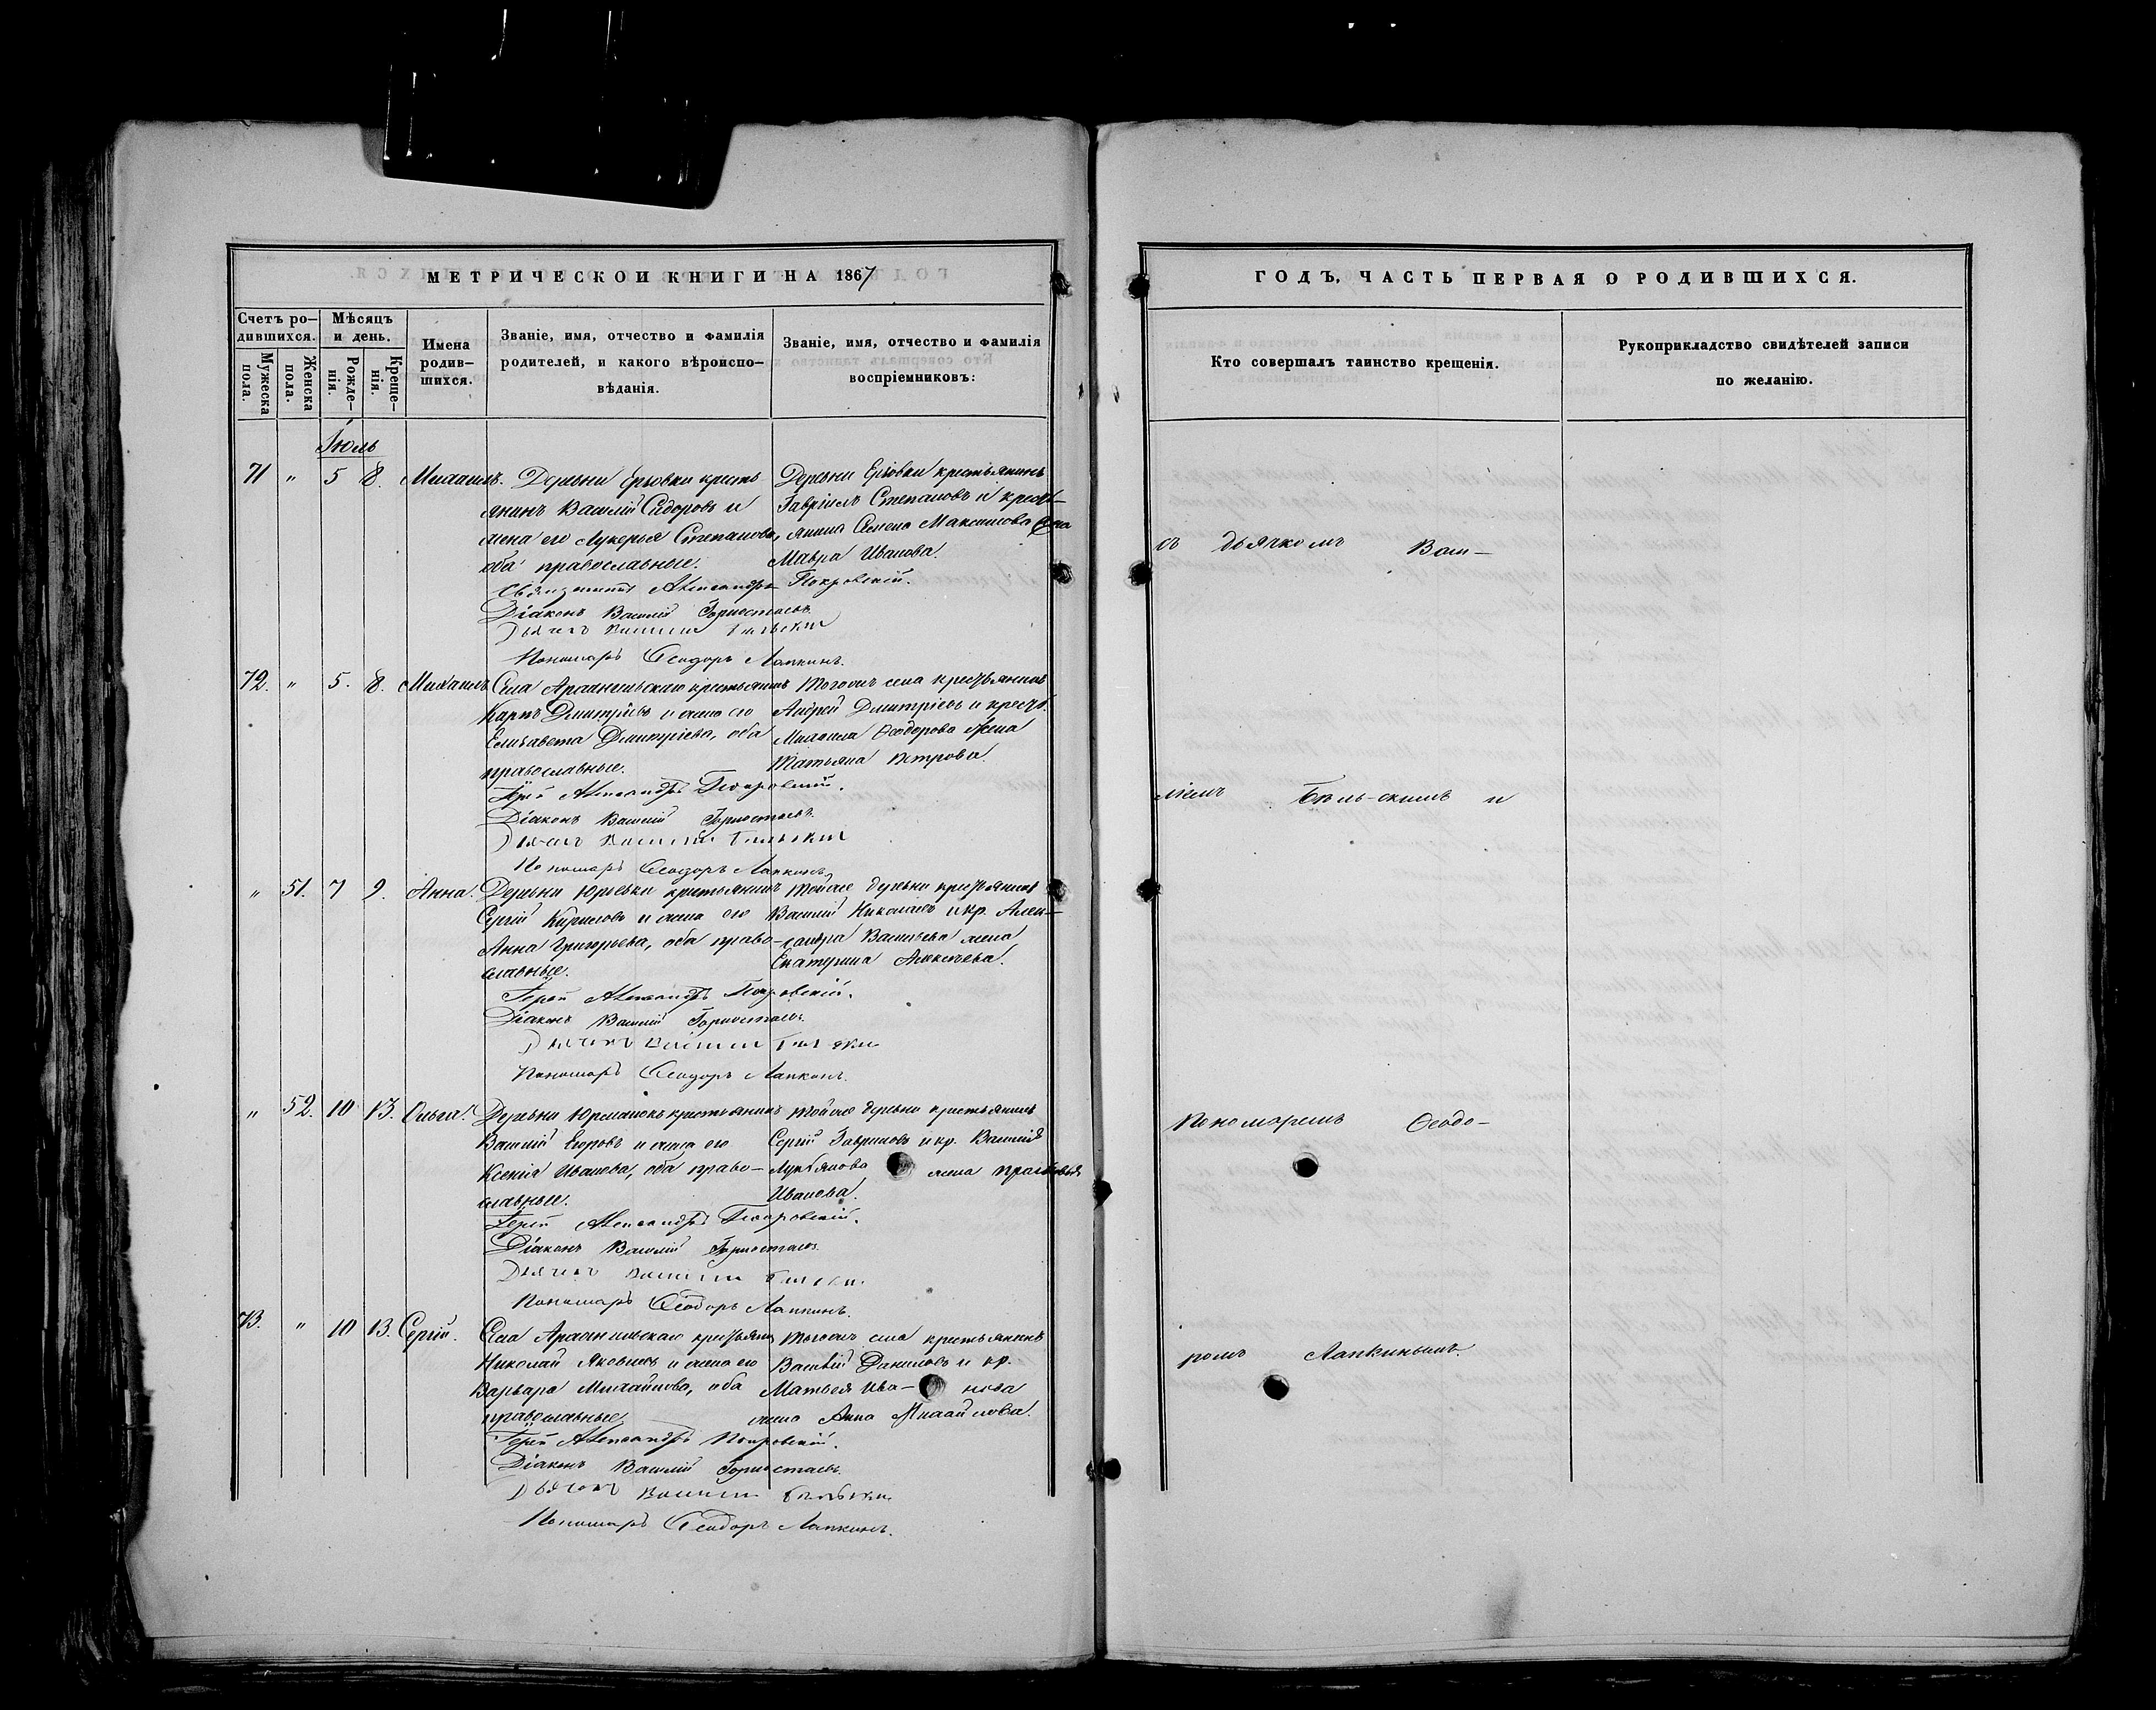 МЕТРИЧЕСКОЙ КНИГИ НА 1867
ГОДЪ, ЧАСТЬ ПЕРВАЯ О РОДИВШИХСЯ.
Счетъ ро-
дившихся.
Мужеска
пола.
Женска
пола.
Мѣсяцъ
и день.
Рожде-
нія.
Креще-
нія.
Имена
родив-
шихся.
Званіе, имя, отчество и фамилія
родителей, и какого вѣроиспо-
вѣданія.
Званіе, имя, отчество и фамилія
воспріемниковъ:
Кто совершалъ таинство крещенія.
Рукоприкладство свидѣтелей записи
по желанію.
Іюль
71 " 5 8. Михаилъ.
Деревни Юрьевки кресть
янинъ Василій Сидоровъ и
жена его Лукерья Степанова,
оба православные.
Деревни Юрьевки крестьянинъ
Гавріилъ Степановъ и кресть-
янина Максимова жена
Мавра Иванова.
Священникъ Александръ Покровскій.
Діаконъ Василій Горностаевъ.
Дьячекъ Василій Бѣльскій
Пономарь Ѳеодоръ Лапкинъ.
72. " 5. 8. Михаилъ
Села Архангельскаго крестьянинъ
Карпъ Дмитріевъ и жена его
Елизавета Дмитріева, оба
православные.
Тогожъ села крестьянинъ
Андрей Дмитріевъ и крест.
Михаила Ѳеодорова жена
Татьяна Петрова.
Іерей Александръ Покровскій.
Діаконъ Василій Горностаевъ.
Дьячекъ Василій Бѣльскій
Пономарь Ѳеодоръ Лапкинъ.
" 51. 7 9. Анна.
Деревни Юрьевки крестьянинъ
Сергій Кириловъ и жена его
Анна Григорьева, оба право-
славные.
Тойже деревни крестьянинъ
Василій Николаевъ и кр. Алек-
сандра Васильева жена
Екатерина Алексѣева.
Іерей Александръ Покровскій.
Діаконъ Василій Горностаевъ.
Дьячекъ Василій Бѣльскій
Пономарь Ѳеодоръ Лапкинъ.
" 52. 10 13. Ольга.
Деревни крестьянинъ
Василій Егоровъ и жена его
Ксенія Иванова, оба право-
славные.
Тойже деревни крестьянинъ
Сергій Гавриловъ и кр. Василія
Лукьянова жена Прасковья
Иванова.
Іерей Александръ Покровскій.
Діаконъ Василій Горностаевъ.
Дьячекъ Василій Бѣльскій.
Пономарь Ѳеодоръ Лапкинъ.
73. " 10 13. Сергій.
Села Архангельскаго крестьянинъ
Николай Яковлевъ и жена его
Варвара Михайлова, оба
православные
Тогожъ села крестьянинъ
Василій Даниловъ и кр.
Матвея Ива- нова
жена Анна Михайлова.
Іерей Александръ Покровскій.
Діаконъ Василій Горностаевъ.
Дьячекъ Василій Бѣльскій.
Пономарь Ѳеодоръ Лапкинъ.
съ дьячкомъ Васи-
ліемъ Бѣль-скимъ и
Пономаремъ Ѳеодо-
ромъ Лапкинымъ.